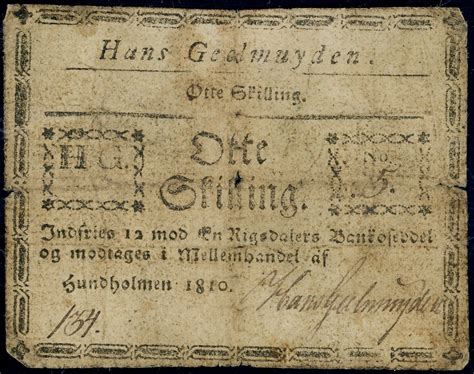 Hans Geelmuyden.
Otte Skilling.
H G.
Otte
Skilling.
5.
Indfries 12 mod En Rigsdalers Bankoseddel
og modtages i Mellemhandel af
Hundholmen 1810.
Hans Geelmuyden
134.